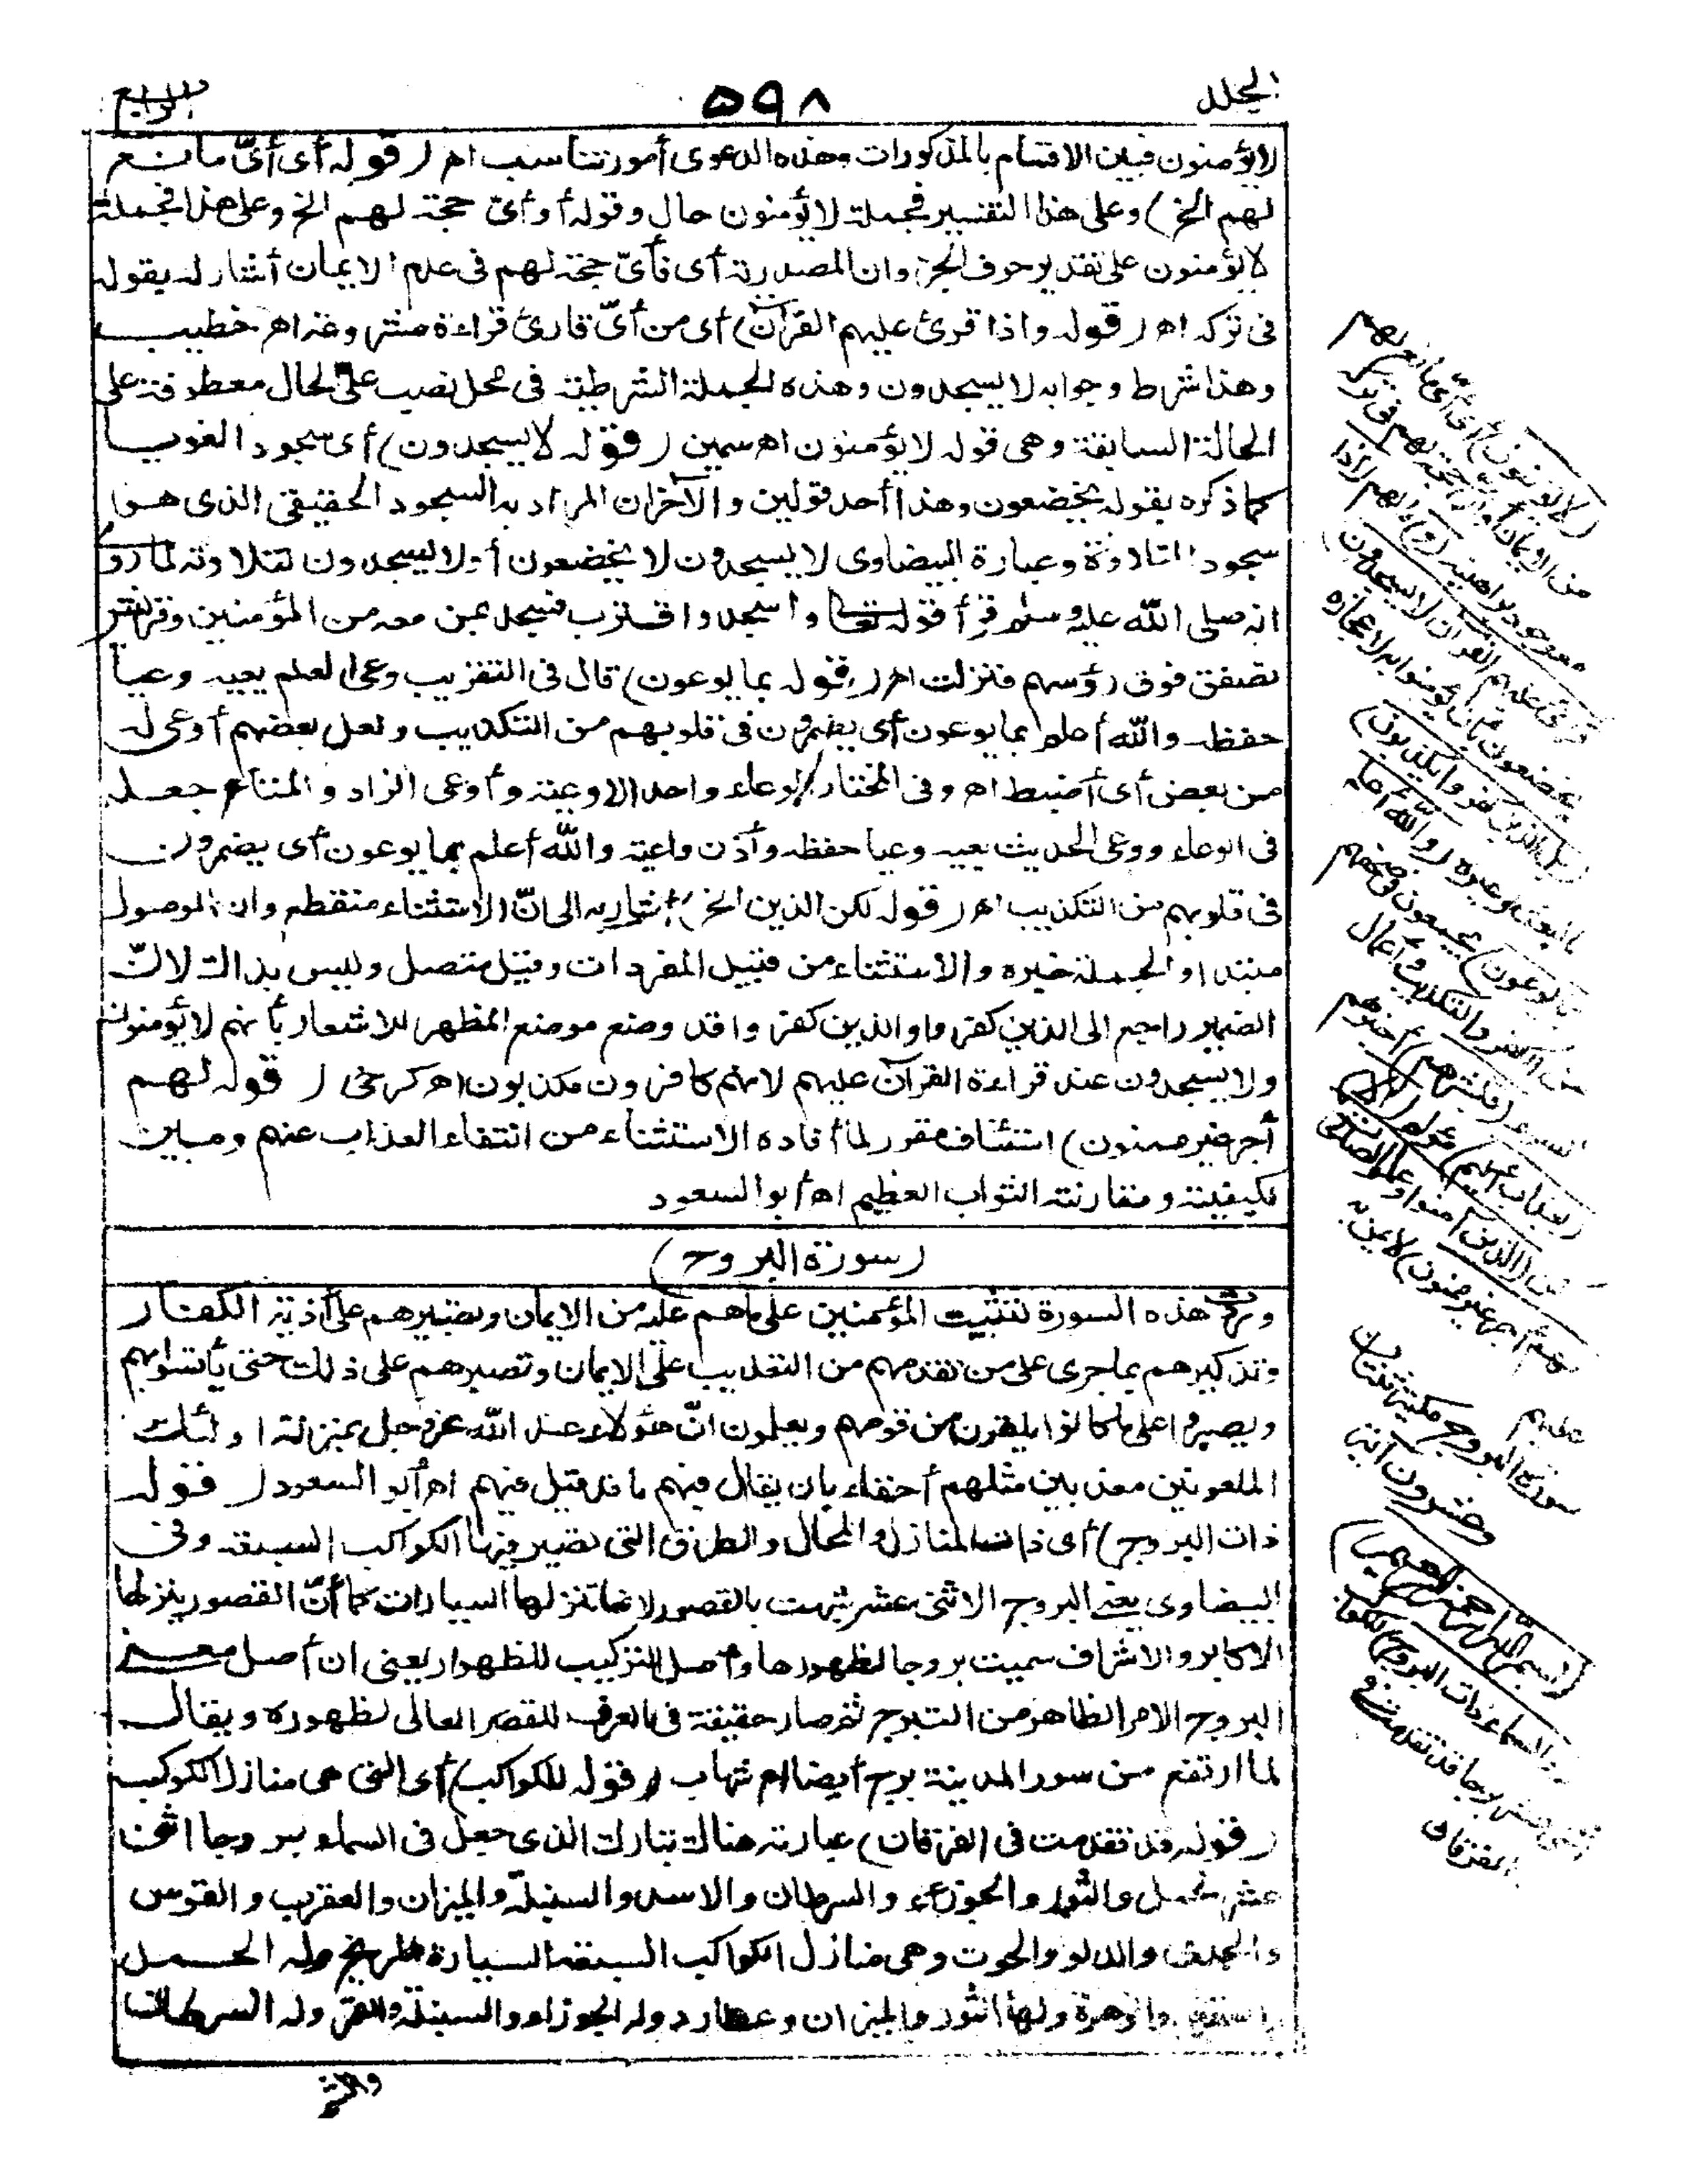 المجلد
٥٩٨
الرابع
لا يؤمنون فبين الاقسام بالمذكورات وهذه الدعوى أمور تتناسب اهـ (قوله أى أىّ مانع
لهم الخ) وعلى هذا التفسير فجملة لا يؤمنون حال وقوله أو أىّ حجة لهم الخ وعلى هذا فجملة
لا يؤمنون على تقدير حرف الجر وان المصدرية أى فأىّ حجة لهم فى عدم الايمان أشار له بقوله
فى تركه اهـ (قوله واذا قرئ عليهم القرآن) أى من أىّ قارئ قراءة اهـ خطيب
وهذا شرط وجوابه لا يسجدون وهذه الجملة الشرطية فى محل نصب على الحال معطوفة على
الحالة السابقة وهى قوله لا يؤمنون اهـ سمين (قوله لا يسجدون) أى سجودا لغويا
كما ذكره بقوله يخضعون وهذا أحد قولين والآخران المراد به السجود الحقيقى الذى هو
سجود التلاوة وعبارة البيضاوى لا يسجدون لا يخضعون أو لا يسجدون لتلاوته لما روى
انه صلى الله عليه وسلم قرأ قوله تعالى واسجد واقترب فسجد بمن معه من المؤمنين وقريش
تصفق فوق رؤسهم فنزلت اهـ (قوله بما يوعون) قال فى التقريب وعى العلم يعيه وعيا
حفظه والله أعلم بما يوعون أى يضمرون فى قلوبهم من التكذيب ولعل بعضهم أوعى له
من بعض أى أضبط اهـ وفى المختار الوعاء واحد الاوعية وأوعى الزاد والمتاع جعله
فى الوعاء ووعى الحديث يعيه وعيا حفظه وأذن واعية والله أعلم بما يوعون أى يضمرون
فى قلوبهم من التكذيب اهـ (قوله لكن الذين الخ) أشار به الى انّ الاستثناء منقطع وان الموصول
مبتدا والجملة خبره والاستثناء من قبيل المفردات وقيل متصل وليس بذاك لانّ
الضمير راجع الى الذين كفروا والذين كفروا قد وضع موضع المظهر للاشعار بأنهم لا يؤمنون
ولا يسجدون عند قراءة القرآن عليهم لانهم كافرون مكذبون اهـ كرخى (قوله لهم
أجر غير ممنون) استئناف مقرر لما أفاده الاستثناء من انتفاء العذاب عنهم ومبين
لكيفيته ومقارنته الثواب العظيم اهـ أبو السعود
(سورة البروج)
هذه السورة لتثبيت المؤمنين على ما هم عليه من الايمان وتصبيرهم على أذية الكفار
وتذكيرهم بما جرى على من تقدمهم من التعذيب على الايمان وتصبرهم على ذلك حتى يأتسوا بهم
ويصبروا على ما كانوا يلقون من قومهم ويعلمون انّ هؤلاء عند الله عز وجل بمنزلة اولئك
الملعونين معذبين مثلهم أحقاء بان يقال فيهم ما قد قيل فيهم اهـ أبو السعود (قوله
ذات البروج) أى ذات المنازل والمحال والطرق التى تصير فيها الكواكب السبعة وفى
البيضاوى يعنى البروج الاثنى عشر شبهت بالقصور لانها تنزلها السيارات كما أنّ القصور ينزلها
الاكابر والاشراف سميت بروجا لظهورها وأصل التركيب للظهور يعنى ان أصل معنى
البروج الامر الظاهر من التبرج ثم صار حقيقة فى العرف للقصر العالى لظهوره ويقال
لما ارتفع من سور المدينة برج أيضا اهـ شهاب (قوله للكواكب) أى التى هى منازل الكواكب
(قوله قد تقدمت فى الفرقان) عبارته هناك تبارك الذى جعل فى السماء بروجا اثنى
عشر الحمل والثور والجوزاء والسرطان والاسد والسنبلة والميزان والعقرب والقوس
والجدى والدلو والحوت وهى منازل الكواكب السبعة السيارة المريخ وله الحمل
والعقرب والزهرة ولها الثور والميزان وعطارد وله الجوزاء والسنبلة والقمر وله السرطان
(لا يؤمنون) أى أىّ مانع لهم
من الايمان أو أىّ حجة لهم فى تركه
مع وجود براهينه (و) مالهم (اذا
قرئ عليهم القرآن لا يسجدون)
يخضعون بأن يؤمنوا به لاعجازه
(بل الذين كفروا يكذبون)
بالبعث وغيره (والله أعلم
بما يوعون) يجمعون فى صحفهم
من الكفر والتكذيب وأعمال
السوء (فبشرهم) أخبرهم
(بعذاب أليم) مؤلم (الا)
لكن (الذين آمنوا وعملوا الصالحات
لهم أجر غير ممنون)
عليهم
سورة البروج مكية ثنتان
وعشرون آية
(بسم الله الرحمن الرحيم)
(والسماء ذات البروج) للكواكب
اثنى عشر برجا قد تقدمت فى
الفرقان